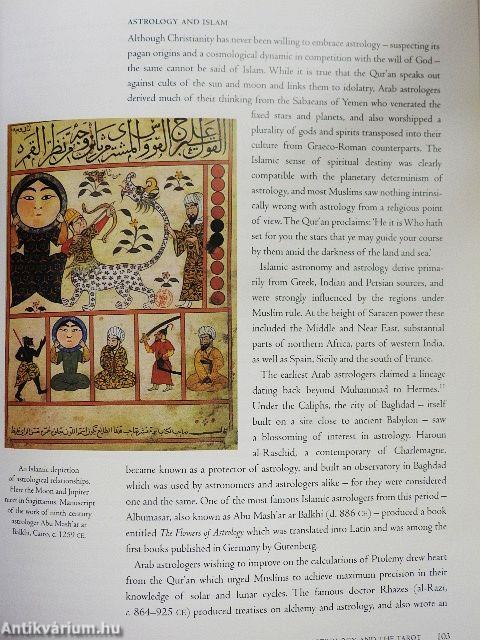 ASTROLOGY AND ISLAM
Although Christianity has never been willing to embrace astrology – suspecting its
pagan origins and a cosmological dynamic in competition with the will of God –
the same cannot be said of Islam. While it is true that the Qur'an speaks out
against cults of the sun and moon and links them to idolatry, Arab astrologers
derived much of their thinking from the Sabaeans of Yemen who venerated the
fixed stars and planets, and also worshipped a
plurality of gods and spirits transposed into their
culture from Graeco-Roman counterparts. The
Islamic sense of spiritual destiny was clearly
compatible with the planetary determinism of
astrology, and most Muslims saw nothing intrinsi-
cally wrong with astrology from a religious point
of view. The Qur'an proclaims: 'He it is Who hath
set for you the stars that ye may guide your course
by them amid the darkness of the land and sea.'
Islamic astronomy and astrology derive prima-
rily from Greek, Indian and Persian sources, and
were strongly influenced by the regions under
Muslim rule. At the height of Saracen power these
included the Middle and Near East, substantial
parts of northern Africa, parts of western India,
as well as Spain, Sicily and the south of France.
The earliest Arab astrologers claimed a lineage
dating back beyond Muhammad to Hermes.
Under the Caliphs, the city of Baghdad – itself
built on a site close to ancient Babylon – saw
a blossoming of interest in astrology. Haroun
al-Raschid, a contemporary of Charlemagne,
became known as a protector of astrology, and built an observatory in Baghdad
which was used by astronomers and astrologers alike – for they were considered
one and the same. One of the most famous Islamic astrologers from this period –
Albumasar, also known as Abu Mash'ar ar Balkhi (d. 886 CE) – produced a book
entitled The Flowers of Astrology which was translated into Latin and was among the
first books published in Germany by Gutenberg.
Arab astrologers wishing to improve on the calculations of Ptolemy drew heart
from the Qur'an which urged Muslims to achieve maximum precision in their
knowledge of solar and lunar cycles. The famous doctor Rhazes (al-Razi,
c. 864–925 CE) produced treatises on alchemy and astrology, and also wrote an
An Islamic depiction
of astrological relationships.
Here the Moon and Jupiter
meet in Sagittarius. Manuscript
of the work of ninth century
astrologer Abu Mash'ar ar
Balkhi, Cairo, c. 1259 CE.
ASTROLOGY AND THE TAROT 103
Antikvárium.hu